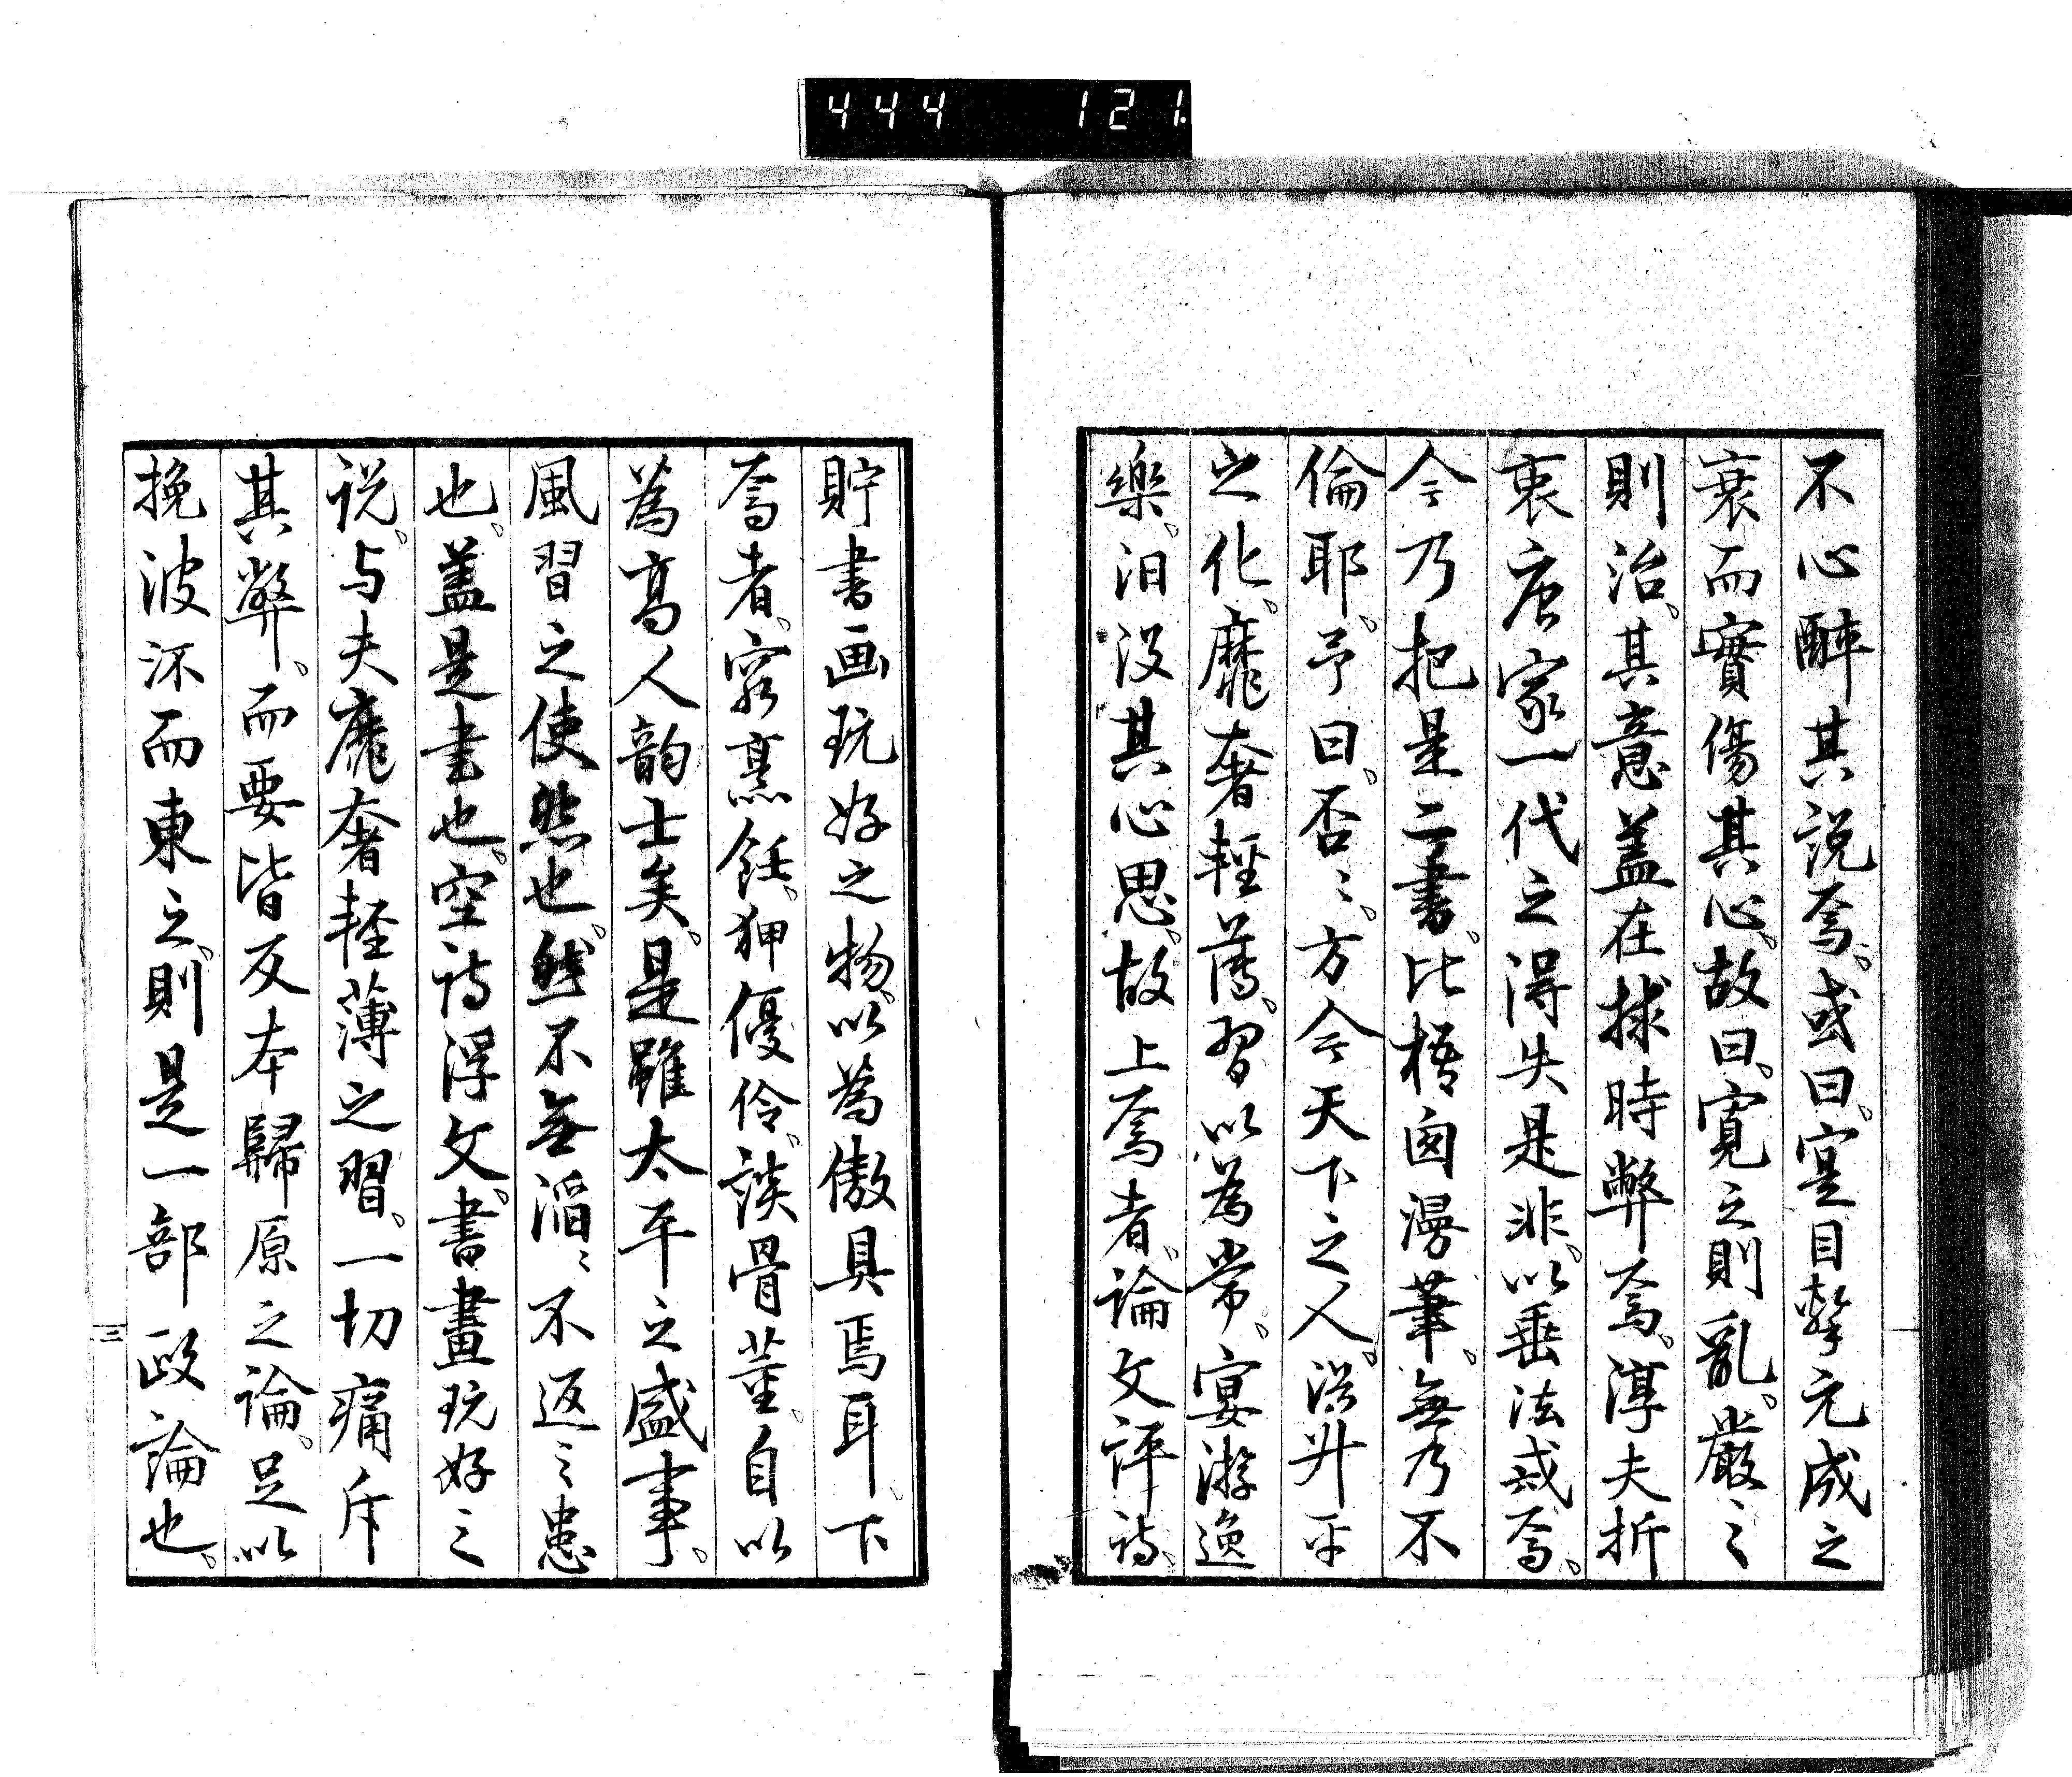 444 121.
不心醉其説焉。或曰。寔目擊元成之
衰而實傷其心。故曰。寛之則亂。嚴之
則治。其意蓋在捄時弊焉。淳夫折
衷唐家一代之得失是非。以垂法戒焉。
今乃把是二書。比梧囱漫筆。無乃不
倫耶。予曰。否〻。方今天下之人。浴升平
之化。靡奢輕薄。習以為常。宴游逸
樂。汨沒其心思。故上焉者。論文評詩。
貯書画玩好之物。以為傲具焉耳。下
焉者。窮烹飪。狎優伶。談骨董。自以
為高人韵士矣。是雖太平之盛事。
風習之使然也。然不無滔〻不返之患
也。蓋是書也。空詩浮文。書畫玩好之
説。与夫靡奢軽薄之習。一切痛斥
其弊。而要皆反本歸原之論。足以
挽波流而東之。則是一部政論也。
三